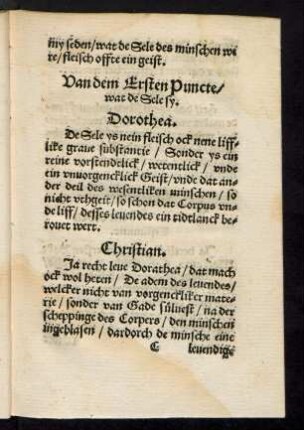 my seden/wat de Sele des minschen we
re/fleisch offte ein geist.
Van dem Ersten Puncte/
wat de Sele sy.
Dorothea.
De Sele ys nein fleisch ock nene liff-
like graue substantie / Sonder ys ein
reine vorstendelick/ wetentlick / vnde
ein vnuorgencklick Geist/vnde dat an-
der deil des wesentliken minschen / so
nicht vthgeit/so schon dat Corpus vn-
de liff/ desses leuendes ein tidtlanck be-
rouet wert.
Christian.
Ja recht leue Dorathea/dat mach
ock wol heten/ De adem des leuendes/
welcker nicht van vorgencklicker mate-
rie/ sonder van Gade süluest/na der
scheppinge des Corpers/den minschen
ingeblasen/ dardorch de minsche eine
C leuendige